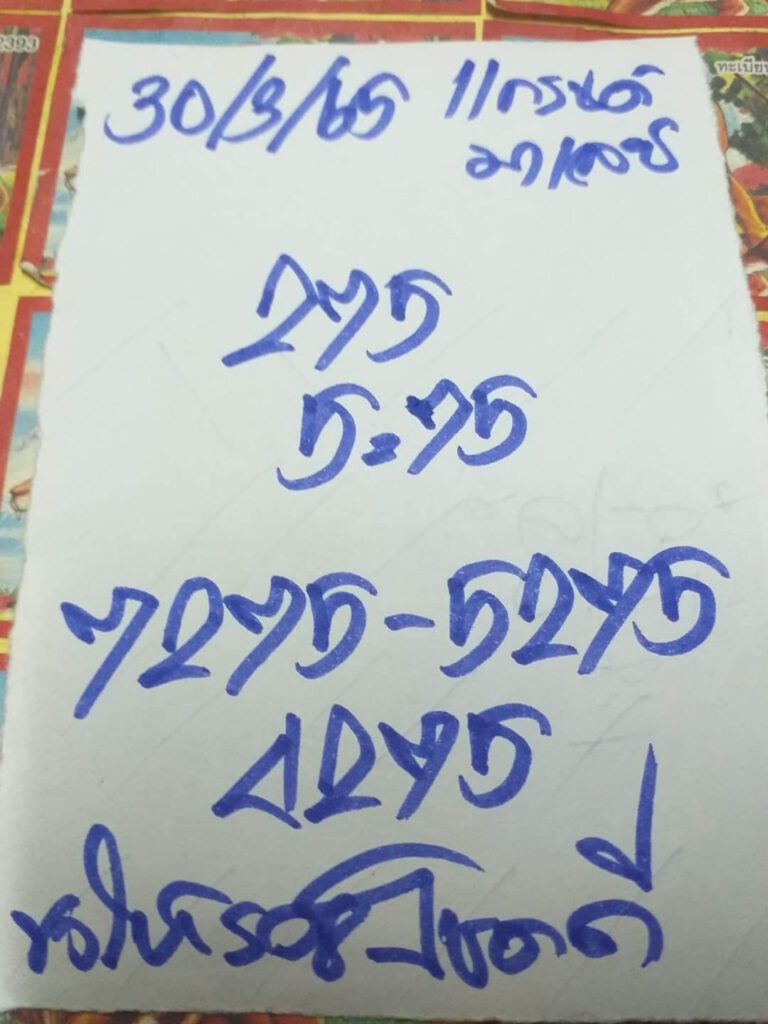 30/3/65 แกรนด์
มาเลย์
275
5=75
7275-5275
4275
ขอให้รวยโชคดี
2393
ทะเบียน